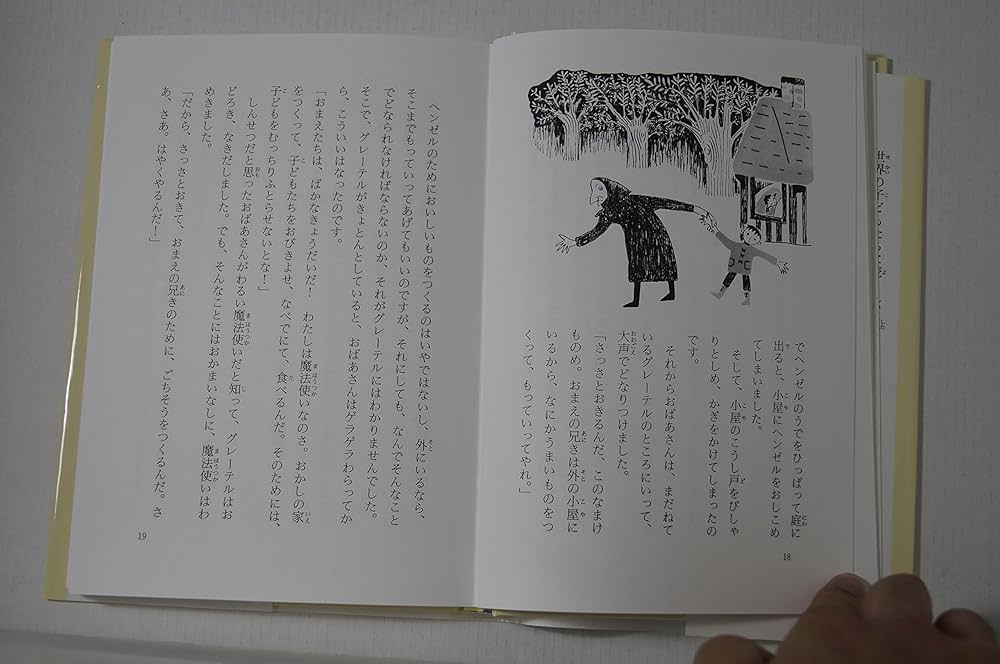 でヘンゼルのうでをひっぱって庭に
出ると、小屋にヘンゼルをおしこめ
てしまいました。
そして、小屋のこうし戸をぴしゃ
りとしめ、かぎをかけてしまったの
です。
それからおばあさんは、まだねて
いるグレーテルのところにいって、
大声でどなりつけました。
「さっさとおきるんだ、このなまけ
ものめ。おまえの兄きは外の小屋に
いるから、なにかうまいものをつ
くって、もっていってやれ。」
18
ヘンゼルのためにおいしいものをつくるのはいやではないし、外にいるなら、
そこまでもっていってあげてもいいのですが、それにしても、なんでそんなこと
でどなられなければならないのか、それがグレーテルにはわかりませんでした。
そこで、グレーテルがきょとんとしていると、おばあさんはゲラゲラわらってか
ら、こういいはなったのです。
「おまえたちは、ばかなきょうだいだ！　わたしは魔法使いなのさ。おかしの家
をつくって、子どもたちをおびきよせ、なべでにて、食べるんだ。そのためには、
子どもをむっちりふとらせないとな！」
しんせつだと思ったおばあさんがわるい魔法使いだと知って、グレーテルはお
どろき、なきだしました。でも、そんなことにはおかまいなしに、魔法使いはわ
めきました。
「だから、さっさとおきて、おまえの兄きのために、ごちそうをつくるんだ。さ
あ、さあ。はやくやるんだ！」
19